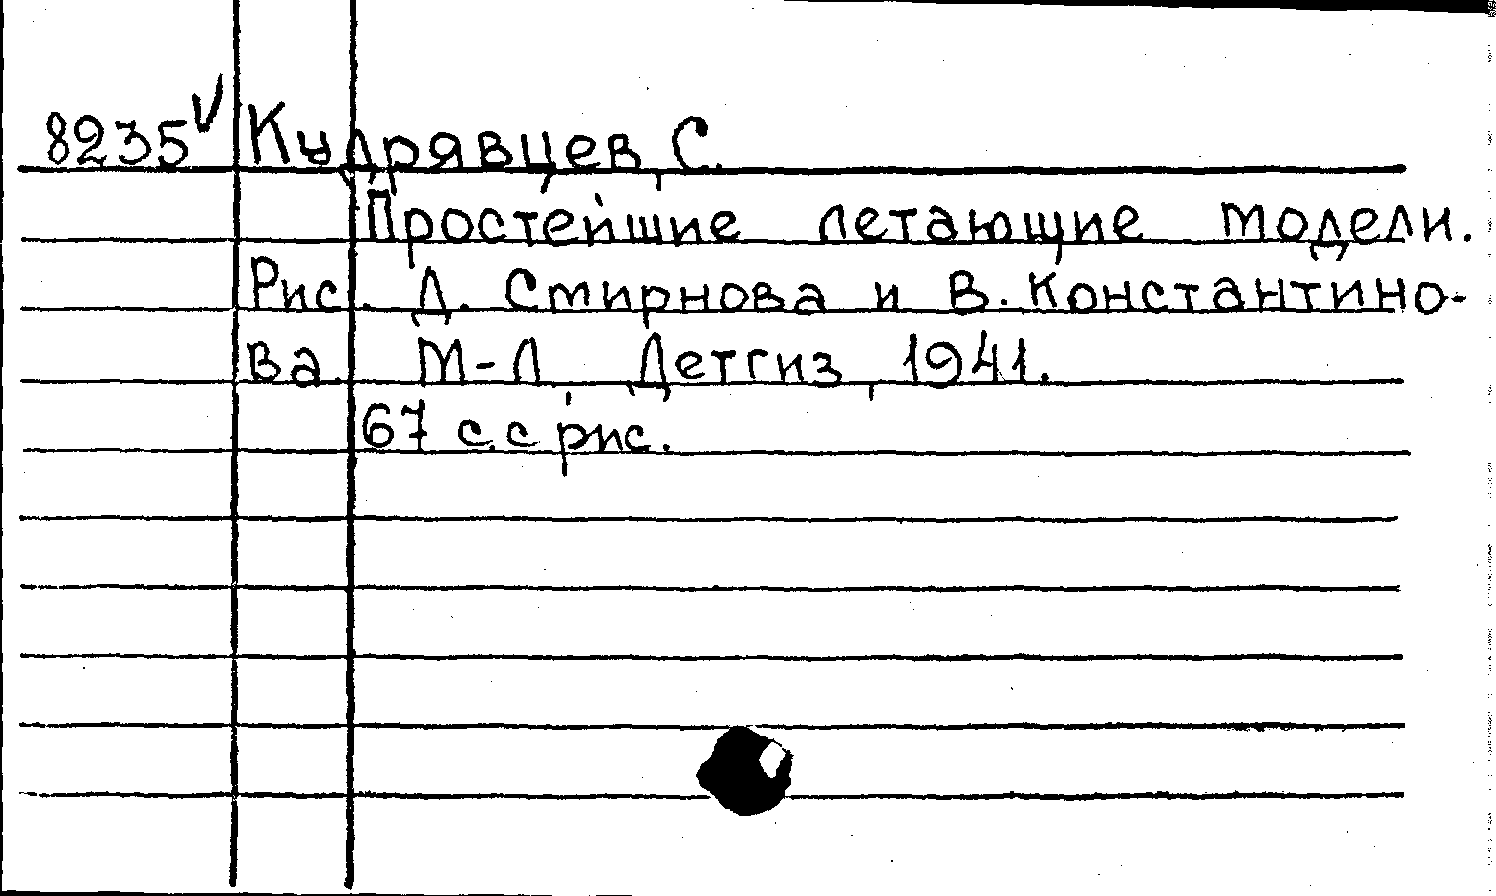 8235 Кудрявцев, С.
Простейшие летающие модели.
Рис. Д. Смирнова и В. Константино-
ва. М-Л, Детгиз, 1941.
67 с. с рис.